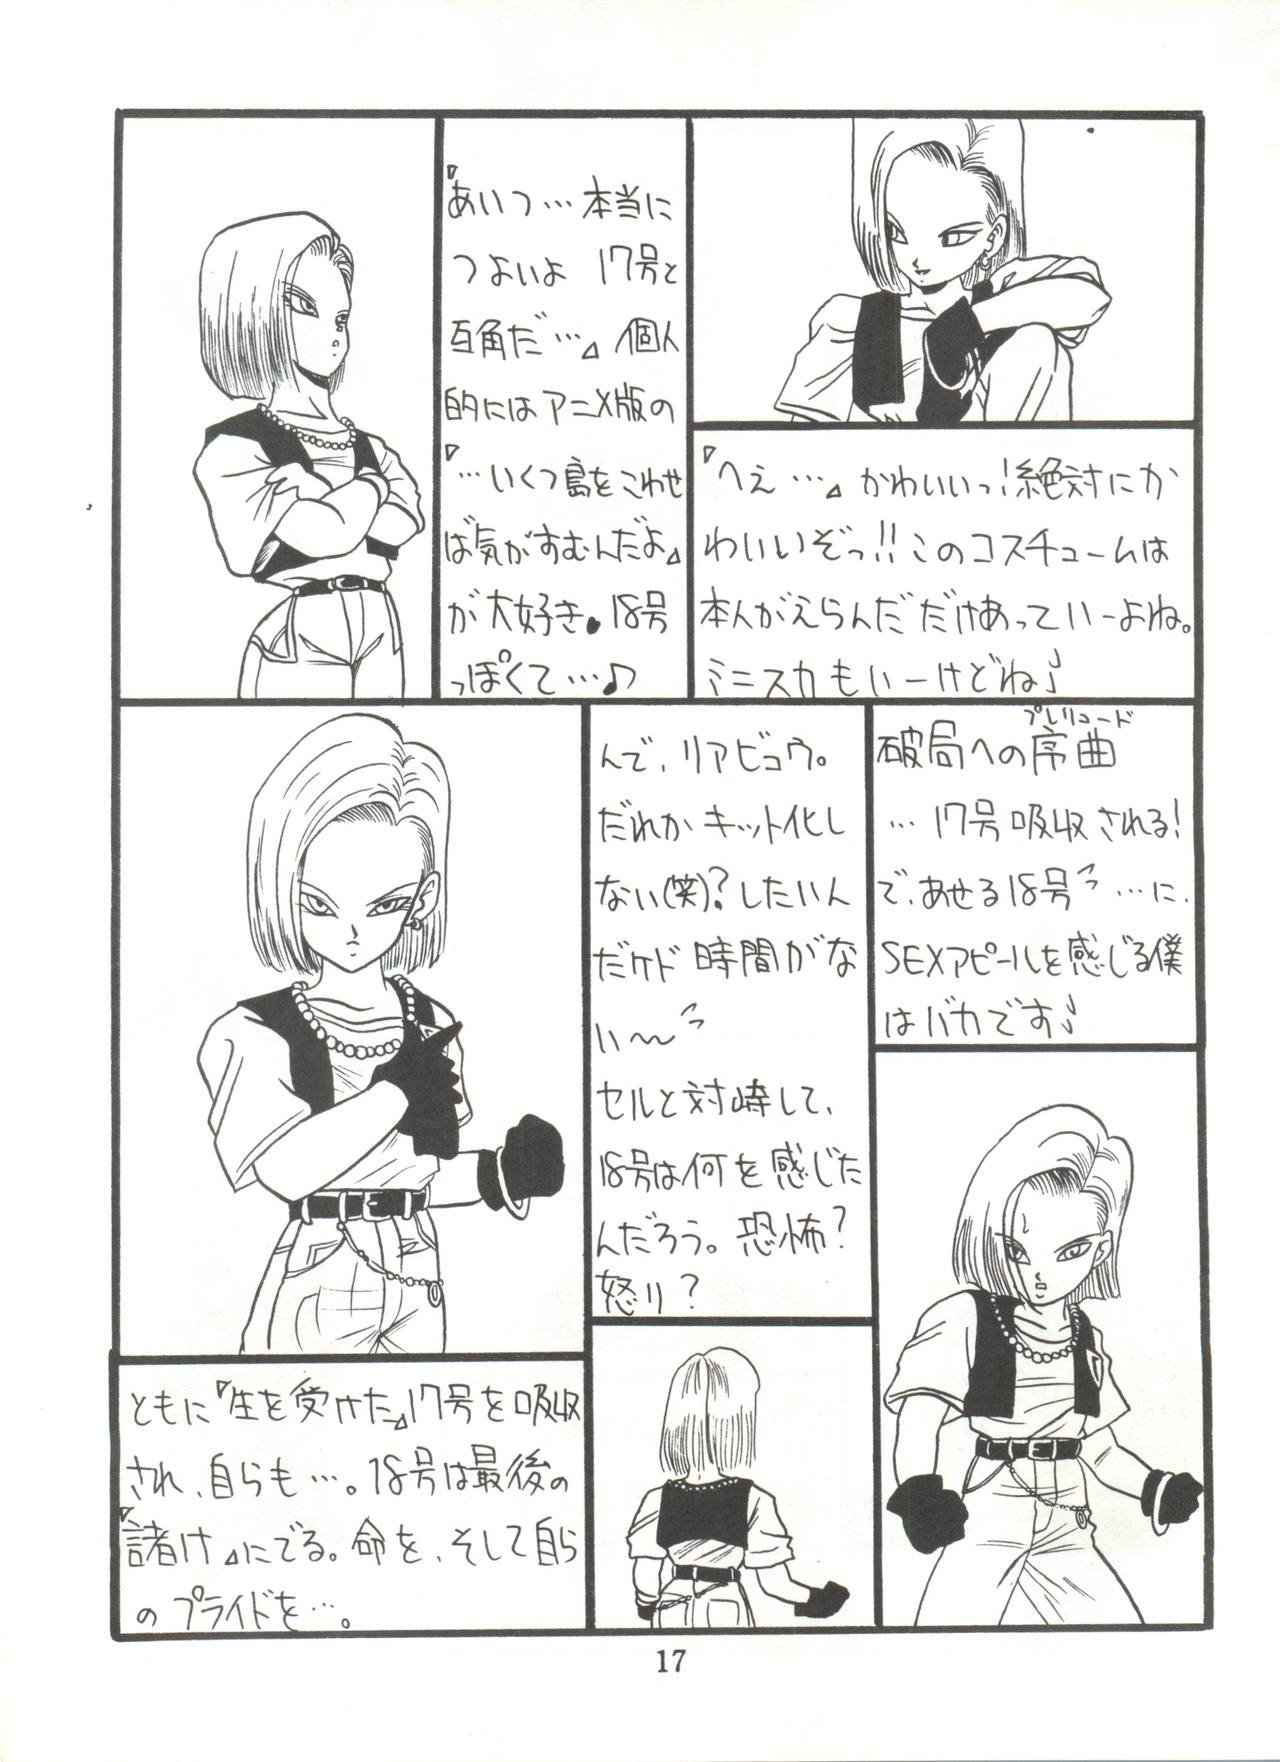 『へえ…』かわいいっ!絶対にか
わいいぞっ!!このコスチュームは
本人がえらんだだけあっていーよね。
ミニスカもいーけどね♪
『あいつ…本当に
つよいよ 17号と
互角だ…』個人
的にはアニメ版の
『…いくつ島をこわせ
ば気がすむんだよ』
が大好き。18号
っぽくて…♪
プレリュード
破局への序曲
…17号吸収される!
で、あせる18号 …に、
SEXアピールを感じる僕
はバカです♪
んで、リアビュウ。
だれかキット化し
ない(笑)?したいん
だケド時間がな
い〜
セルと対峙して、
18号は何を感じた
んだろう。恐怖?
怒り?
ともに『生を受けた』17号を吸収
され、自らも…。18号は最後の
『諸け』にでる。命を、そして自ら
のプライドを…。
17